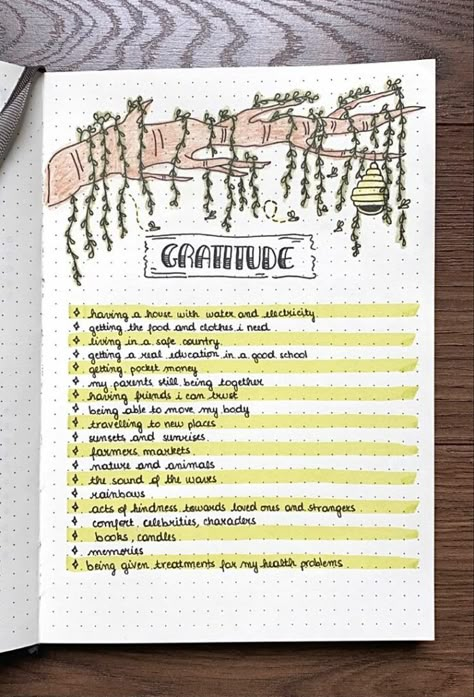 GRATITUDE
having a house with water and electricity
getting the food and clothes i need
living in a safe country
getting a real education in a good school
getting pocket money
my parents still being together
having friends i can trust
being able to move my body
travelling to new places
sunsets and sunrises
farmers markets
nature and animals
the sound of the waves
rainbows
acts of kindness towards loved ones and strangers
comfort, celebrities, characters
books, candles
memories
being given treatments for my health problems